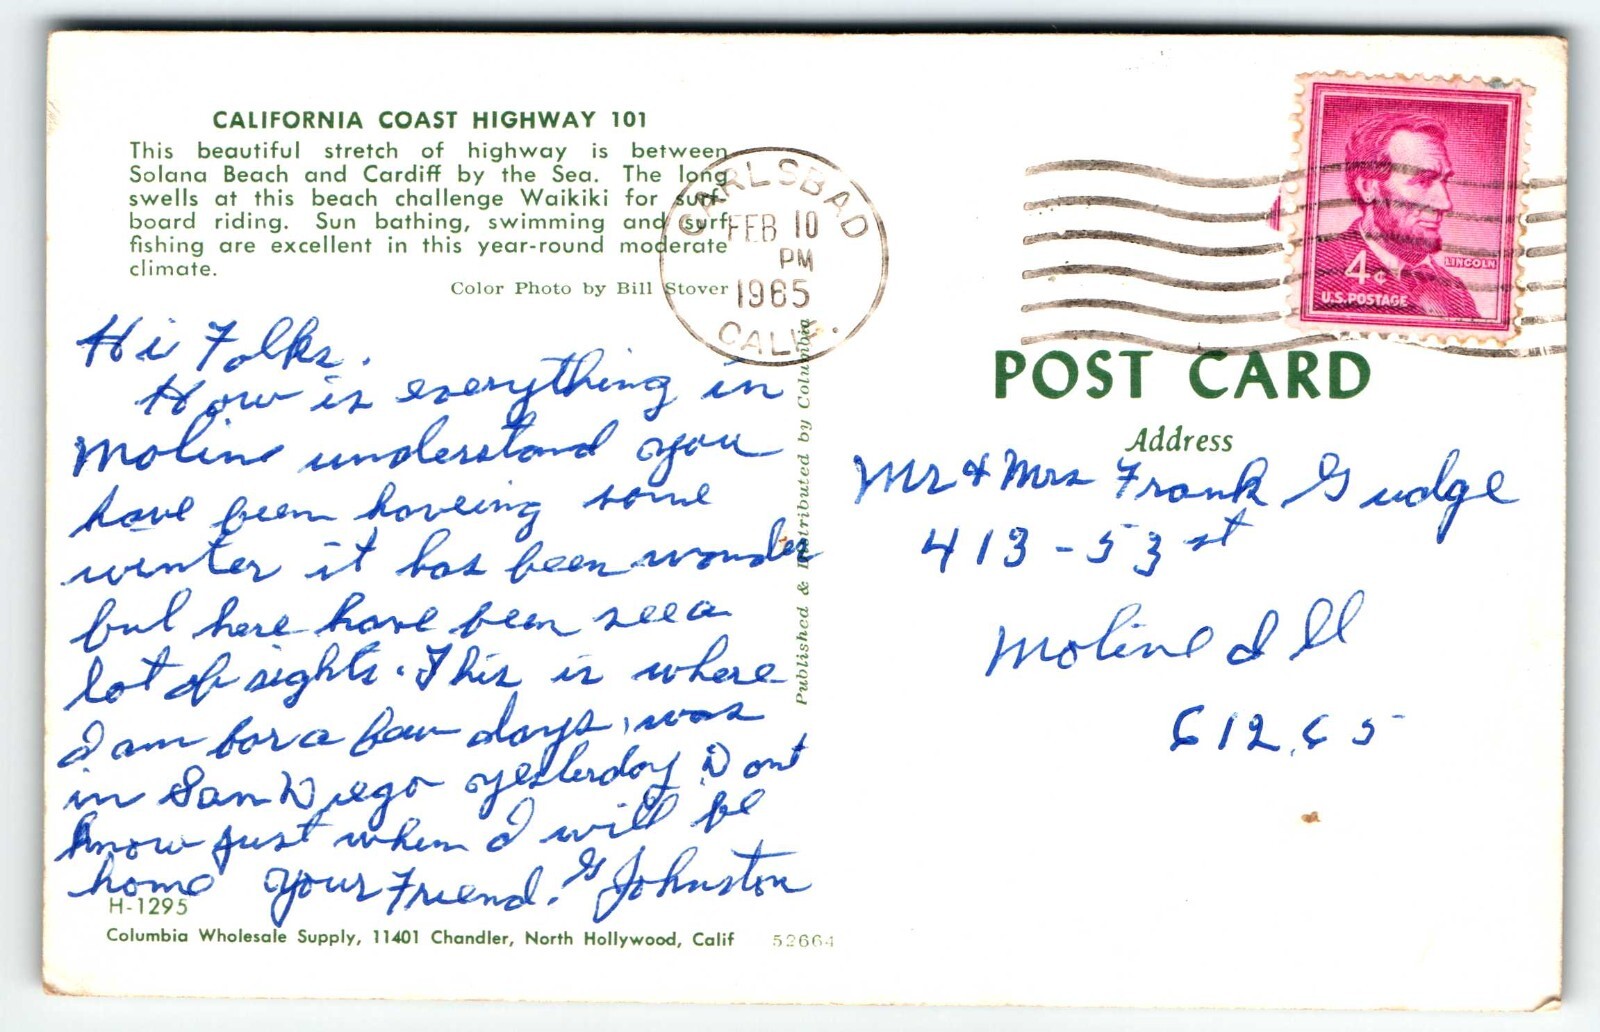 CALIFORNIA COAST HIGHWAY 101
This beautiful stretch of highway is between
Solana Beach and Cardiff by the Sea. The long
swells at this beach challenge Waikiki for surf-
board riding. Sun bathing, swimming and surf
fishing are excellent in this year-round moderate
climate.
Color Photo by Bill Stover
Hi Folks.
How is everything in
Moline understand you
have been haveing some
winter it has been wonder
ful here have been see a
lot of sights. This is where
I am for a few days, was
in San Diego yesterday Dont
know just when I will be
home Your Friend. G Johnston
H-1295
Columbia Wholesale Supply, 11401 Chandler, North Hollywood, Calif
52664
Published & Distributed by Columbia
CARLSBAD
FEB 10
PM
1965
CALIF.
4¢
LINCOLN
U.S. POSTAGE
POST CARD
Address
Mr & Mrs Frank Gudge
413-53 st
Moline Ill
61265